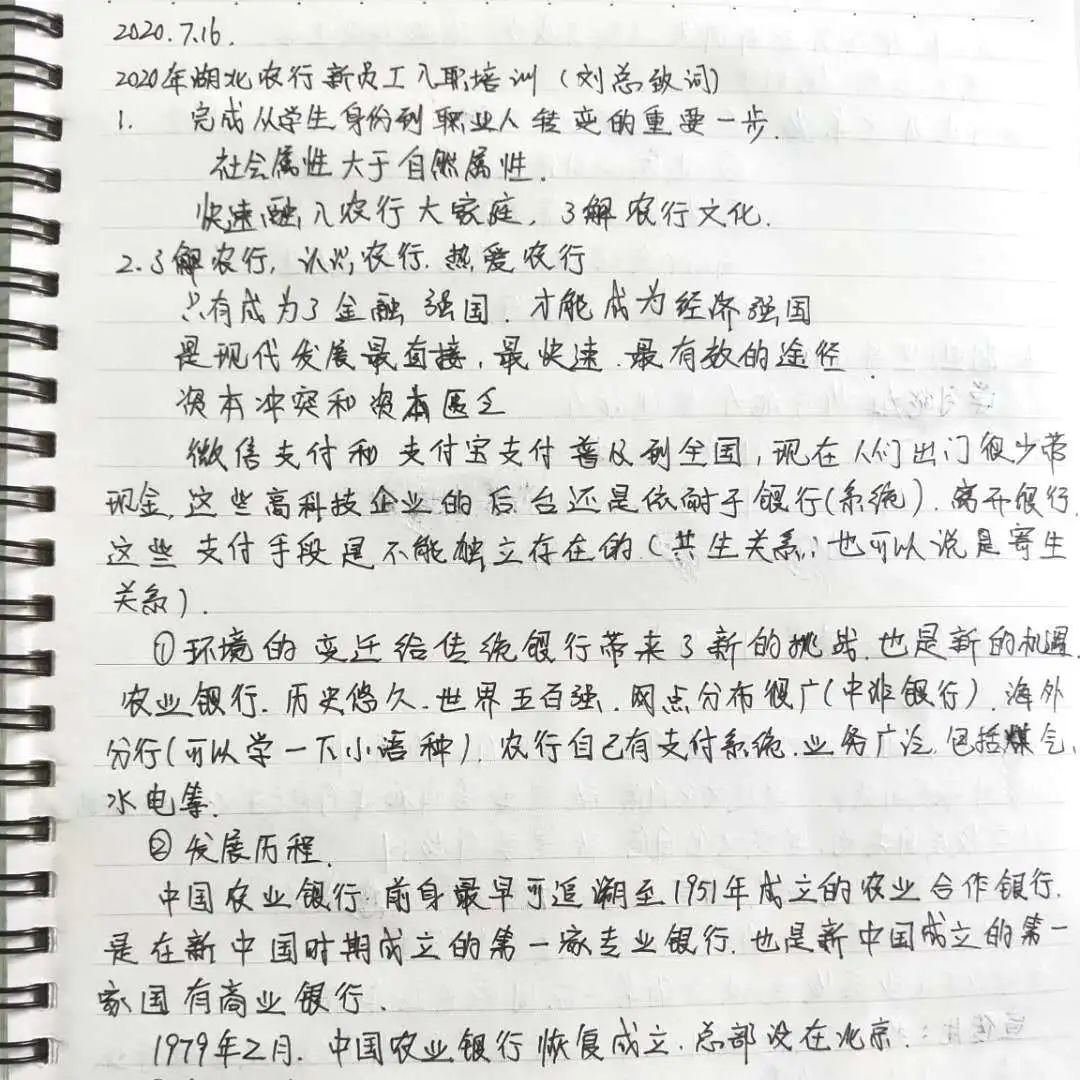 2020.7.16.
2020年湖北农行新员工入职培训（刘总致词）
1. 完成从学生身份到职业人转变的重要一步.
社会属性大于自然属性.
快速融入农行大家庭，了解农行文化.
2.了解农行，认识农行.热爱农行
只有成为了金融强国，才能成为经济强国
是现代发展最直接，最快速.最有效的途径.
资本冲突和资本匮乏
微信支付和支付宝支付普及到全国，现在人们出门很少带
现金，这些高科技企业的后台还是依耐于银行(系统)，离开银行，
这些支付手段是不能独立存在的(共生关系；也可以说是寄生
关系).
①环境的变迁给传统银行带来了新的挑战.也是新的机遇.
农业银行.历史悠久.世界五百强.网点分布很广(中非银行).海外
分行(可以学一下小语种).农行自己有支付系统.业务广泛.包括煤气、
水电等.
②发展历程.
中国农业银行.前身最早可追溯至1951年成立的农业合作银行.
是在新中国时期成立的第一家专业银行.也是新中国成立的第一
家国有商业银行.
1979年2月.中国农业银行恢复成立.总部设在北京.